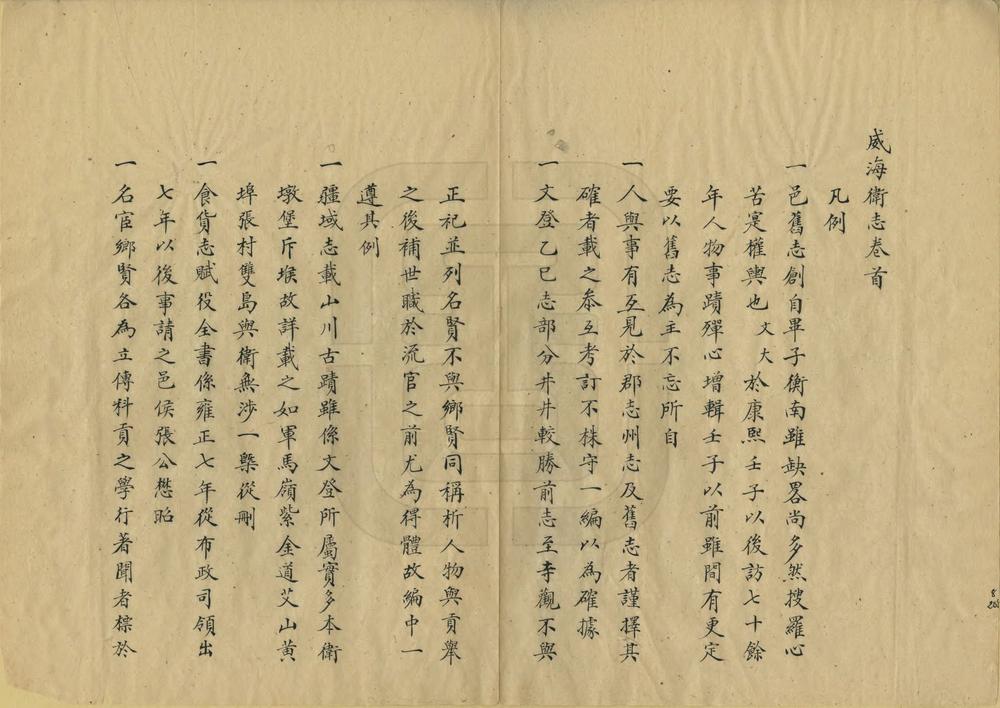 威海衛志卷首
凡例
一邑舊志創自畢子衡南雖缺畧尚多然搜羅心
苦寔權輿也大文於康熙壬子以後訪七十餘
年人物事蹟殫心增輯壬子以前雖間有更定
要以舊志為主不忘所自
一人與事有互見於郡志州志及舊志者謹擇其
確者載之叅互考訂不株守一編以為確據
一文登乙巳志部分井井較勝前志至寺觀不與
正祀並列名賢不與鄉賢同稱析人物與貢舉
之後補世職於流官之前尤為得體故編中一
遵其例
一疆域志載山川古蹟雖係文登所屬實多本衛
墩堡斥堠故詳載之如軍馬嶺紫金道艾山黃
埠張村雙島與衛無涉一槩從刪
一食貨志賦役全書係雍正七年從布政司領出
七年以後事請之邑侯張公懋昭
一名宦鄉賢各為立傳科貢之學行著聞者標於